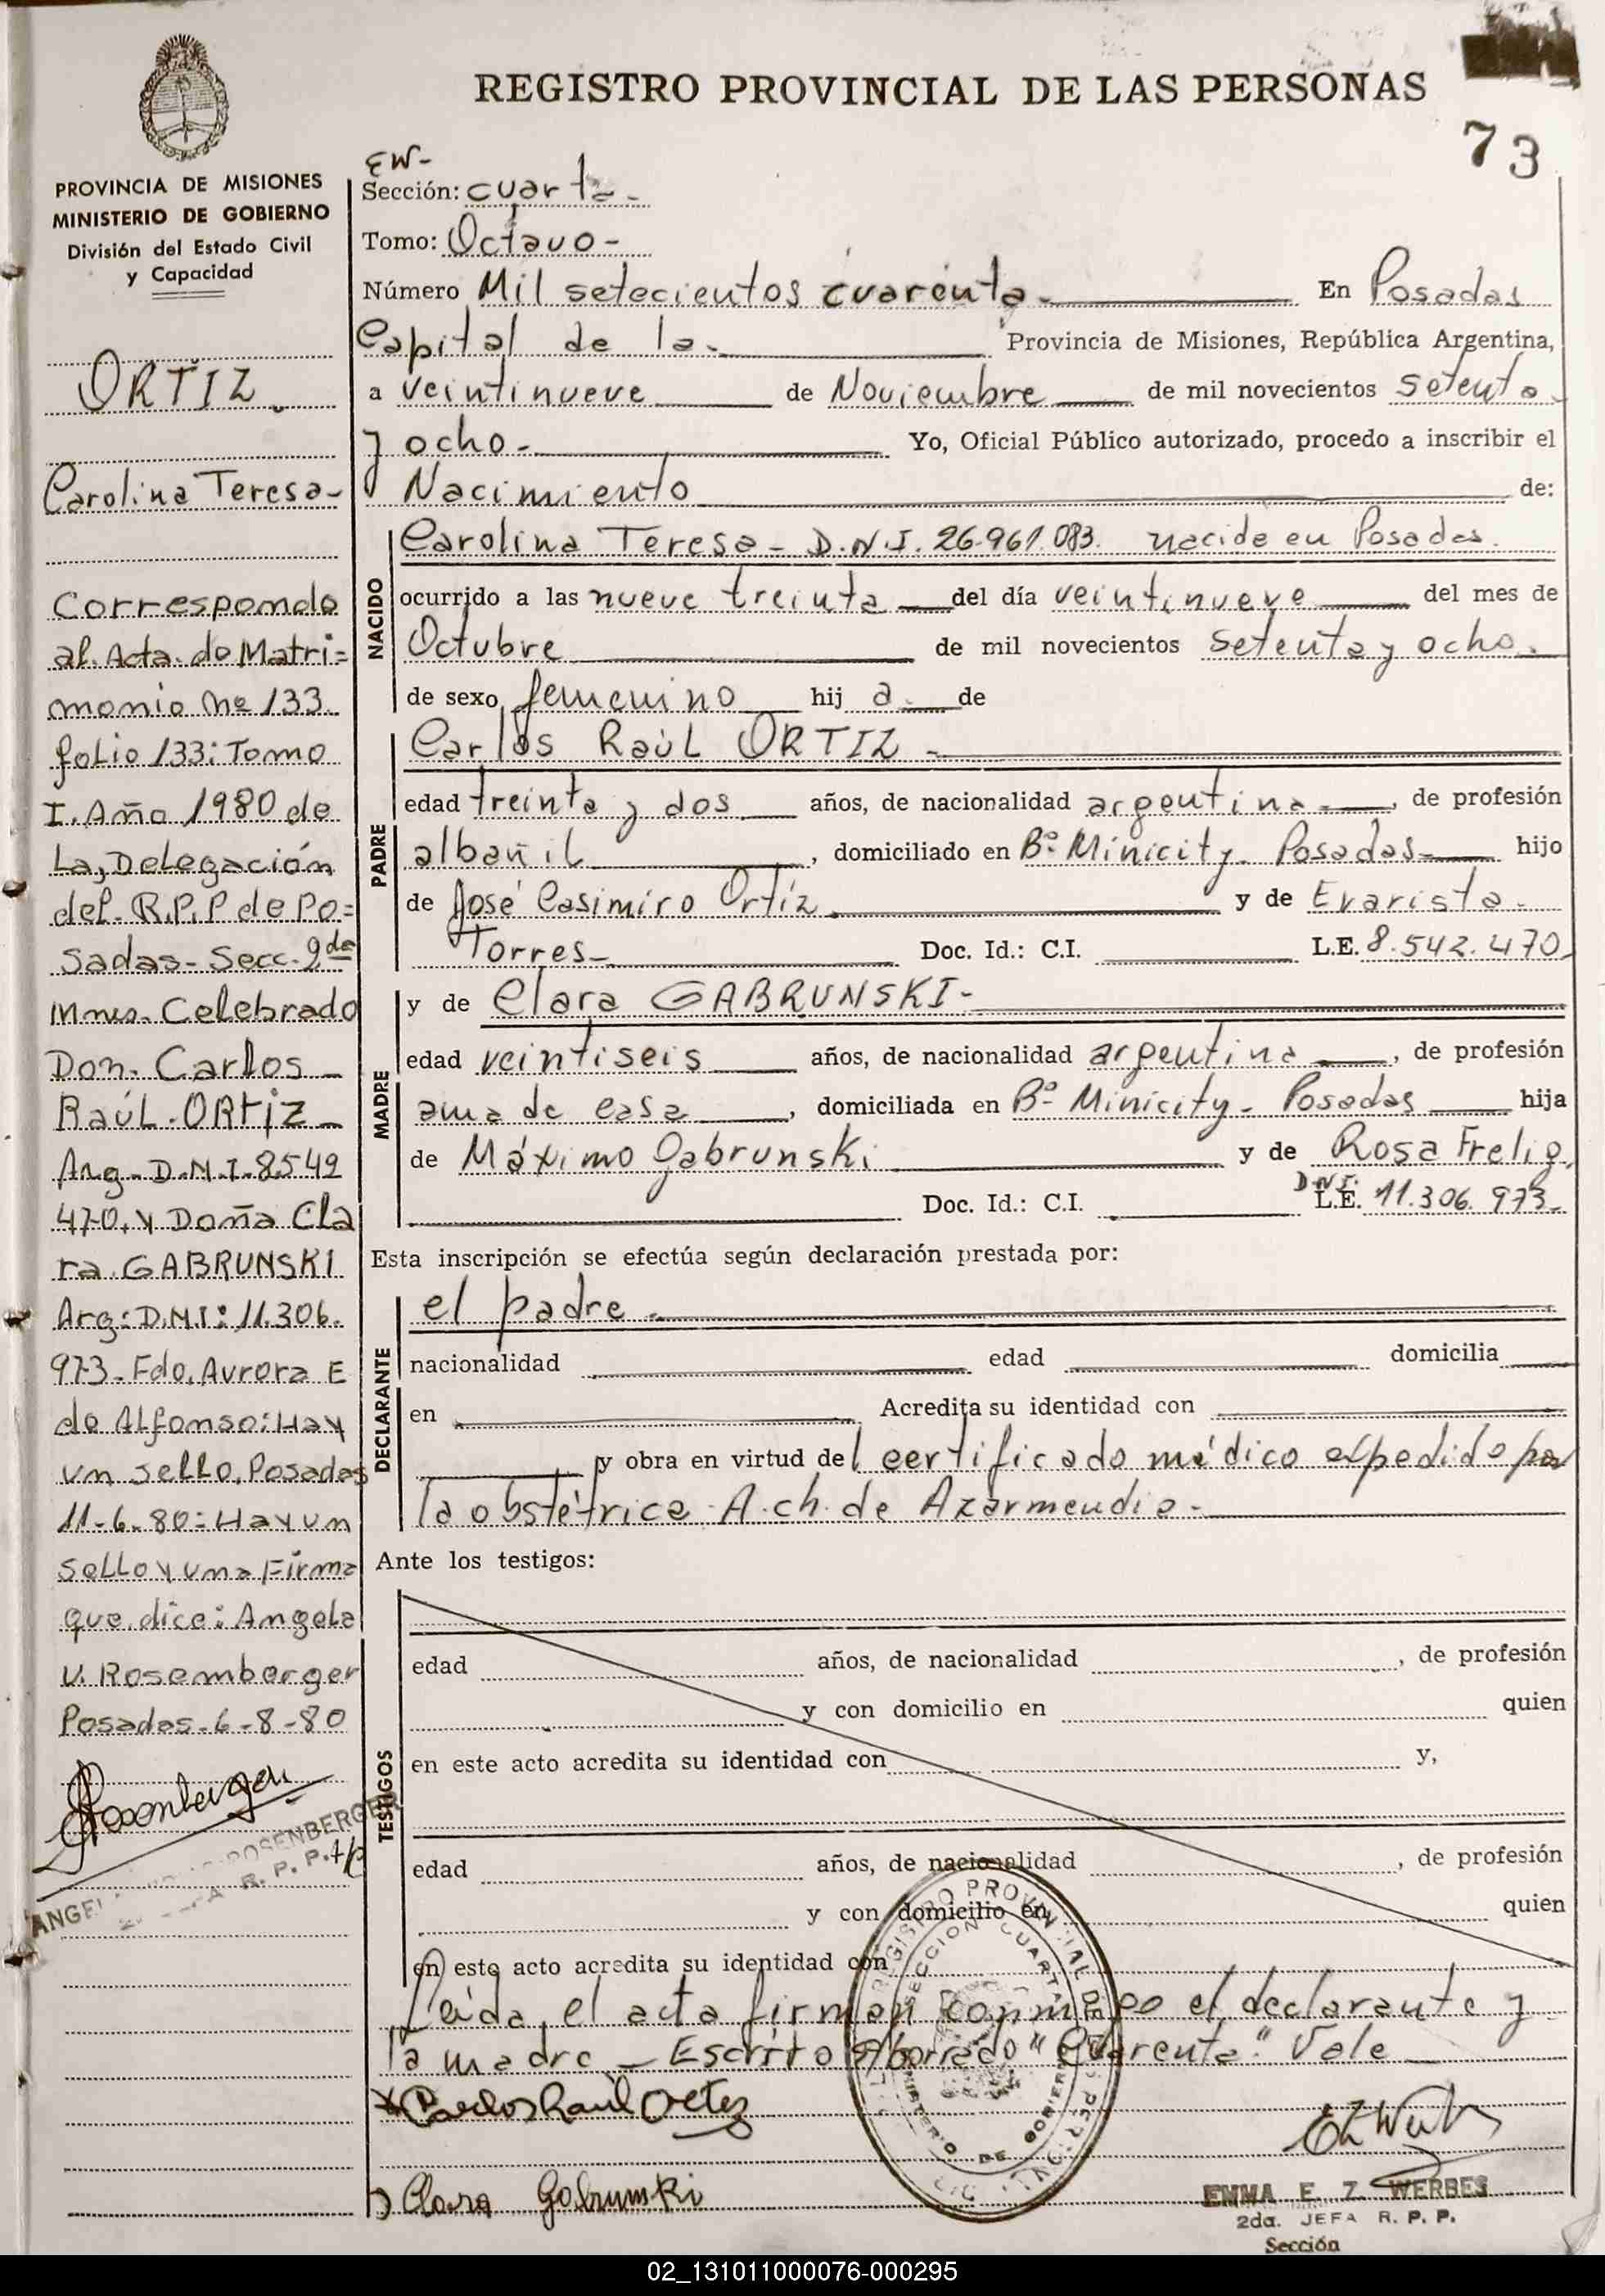 REGISTRO PROVINCIAL DE LAS PERSONAS
73
PROVINCIA DE MISIONES
MINISTERIO DE GOBIERNO
División del Estado Civil
y Capacidad
ORTIZ.
Carolina Teresa-
Correspondo
al. Acta. do Matri=
monio No 133.
folio 133: Tomo
I. Año 1980 de
La, Delegación
del. R.P.P de Po=
sadas- Secc. 2da
Mnes. Celebrado
Don. Carlos
RaúL. ORTIZ
Arg- D.N.I. 8542
470. y Doña Cla
ra. GABRUNSKI
Arg: D.N.I: 11.306.
973- Fdo. Aurora E
de Alfonso: Hay
un sello. Posadas
11-6-80: Hay un
seLLo y una Firma
que. dice: Angela
V. Rosemberger
Posadas-6-8-80
Rosenberger
ROSENBERGER
R. P. P.
EW-
Sección: cuarta-
Tomo: Octavo-
Número Mil setecientos cuarenta- En Posadas
Capital de la- Provincia de Misiones, República Argentina,
a veintinueve de Noviembre de mil novecientos setenta
y ocho- Yo, Oficial Público autorizado, procedo a inscribir el
Nacimiento de:
NACIDO
Carolina Teresa- D.N.I. 26.961.083. nacida en Posadas.
ocurrido a las nueve treinta del día veintinueve del mes de
Octubre de mil novecientos setenta y ocho.
de sexo femenino hij a de
PADRE
Carlos Raúl ORTIZ-
edad treinta y dos años, de nacionalidad argentina, de profesión
albañil, domiciliado en B° Minicity- Posadas- hijo
de José Casimiro Ortíz y de Evarista-
Torres- Doc. Id.: C.I. L.E. 8.542.470
MADRE
y de Clara GABRUNSKI-
edad veintiseis años, de nacionalidad argentina, de profesión
ama de casa, domiciliada en B° Minicity- Posadas hija
de Máximo Gabrunski y de Rosa Frelig.
Doc. Id.: C.I. D.N.I. L.E. 11.306.973-
Esta inscripción se efectúa según declaración prestada por:
DECLARANTE
el padre-
nacionalidad edad domicilia
en Acredita su identidad con
y obra en virtud del certificado médico expedido por
la obstétrica A.ch. de Azarmendia-
Ante los testigos:
TESTIGOS
edad años, de nacionalidad , de profesión
y con domicilio en quien
en este acto acredita su identidad con y,
edad años, de nacionalidad , de profesión
y con domicilio en quien
en este acto acredita su identidad con
Leída el acta firman conmigo el declarante y
la madre - Escrito s/borrado "Cuarenta" Vale
Carlos Raúl Ortiz
Clara Gabrunski
REGISTRO PROVINCIAL DE
SECCION CUARTA
MINISTERIO DE GOBIERNO
EMMA E. Z. WERBES
2da. JEFA R. P. P.
Sección
02_131011000076-000295